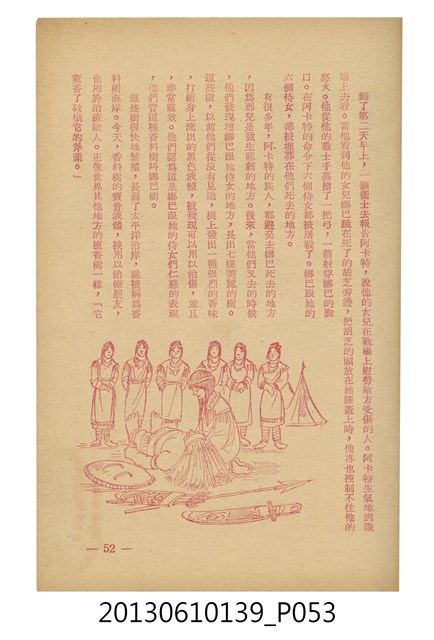 到了第二天早上，一個衛士去報告阿卡特，說他的女兒在戰場上慰勞敵方受傷的人。阿卡特生氣地到戰
場上去看。當他看到他的女兒娜巴跪在死了的胡芝旁邊，把胡芝的頭放在她膝蓋上時，他再也控制不住他的
怒火。他從他的戰士手裏搶了一把弓，一箭射穿娜巴的胸
口。在阿卡特的命令下六個侍女都被屠殺了。娜巴跟她的
六個侍女，都被埋葬在他們死去的地方。
有很多年，阿卡特的族人，都避免去娜巴死去的地方
，因為那兒是發生悲劇的地方。後來，當他們又去的時候
，他們發現埋娜巴跟她侍女的地方，長出七棵美麗的樹。
這些樹，以前他們從沒有見過，樹上發出一種強烈的香味
，打樹身上流出的黑色液體，被發現可以用以治傷，並且
，非常靈效。他們認為這是娜巴跟她的侍女們仁慈的表現
，他們管這種香料樹叫娜巴樹。
這些樹很快地繁殖，長遍了太平洋沿岸，遂被稱為香
料樹海岸。今天，香料樹的寶貴液體，被用以治療朋友，
也用於治療敵人。正像世界其他地方的檀香樹一樣，「它
薰香了砍倒它的斧頭。」
— 52 —
20130610139_P053